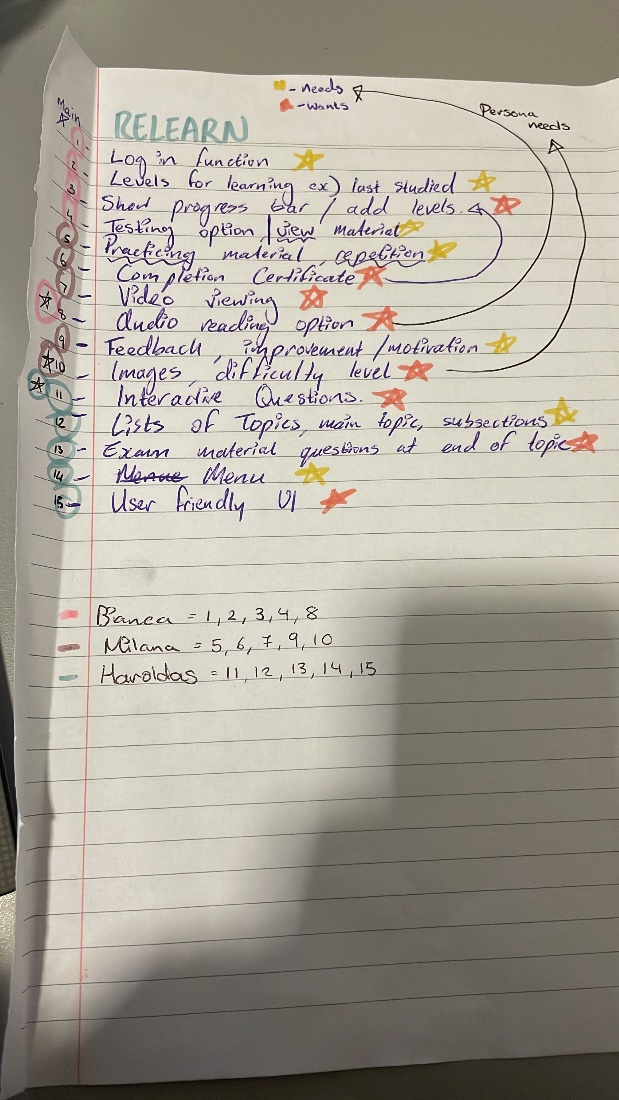 - needs
- wants
Persona needs
Main
RELEARN
1 - Log in function
2 - Levels for learning ex) last studied
3 - Show progress bar / add levels.
4 - Testing option / view material
5 - Practicing material, repetition
6 - Completion Certificate
7 - Video viewing
8 - Audio reading option
9 - Feedback, improvement / motivation
10 - Images, difficulty level
11 - Interactive Questions.
12 - Lists of Topics, main topic, subsections
13 - Exam material questions at end of topic
14 - Menue Menu
15 - User friendly UI
- Bianca = 1, 2, 3, 4, 8
- Milana = 5, 6, 7, 9, 10
- Haroldas = 11, 12, 13, 14, 15